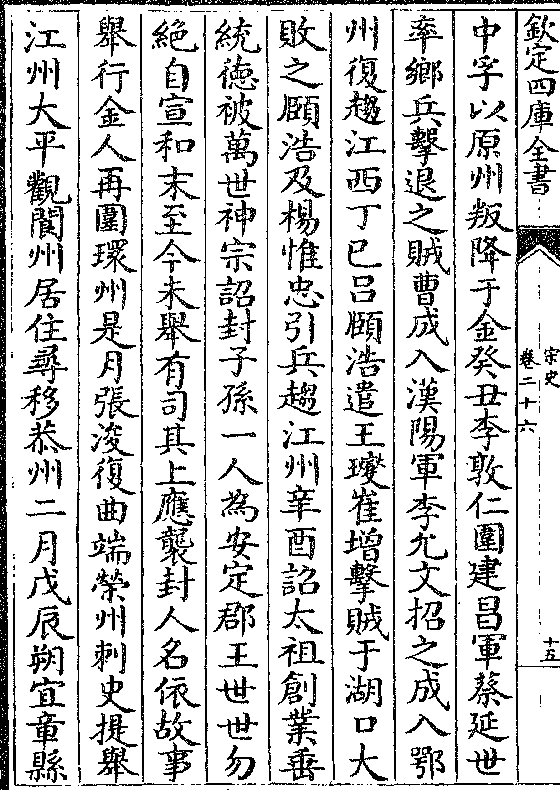 欽定四庫全書
宋史
卷二十六
十五
中孚以原州叛降于金癸丑李敦仁圍建昌軍蔡延世
率鄉兵擊退之賊曹成入漢陽軍李允文招之成入鄂
州復趨江西丁巳呂頤浩遣王𤫉崔增擊賊于湖口大
敗之頤浩及楊惟忠引兵趨江州辛酉詔太祖創業垂
統德被萬世神宗詔封子孫一人為安定郡王世世勿
絶自宣和末至今未舉有司其上應襲封人名依故事
舉行金人再圍環州是月張浚復曲端榮州刺史提舉
江州大平觀閬州居住尋移恭州二月戊辰朔宜章縣